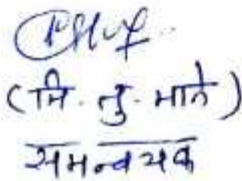 (मि. तु. माने)
समन्वयक